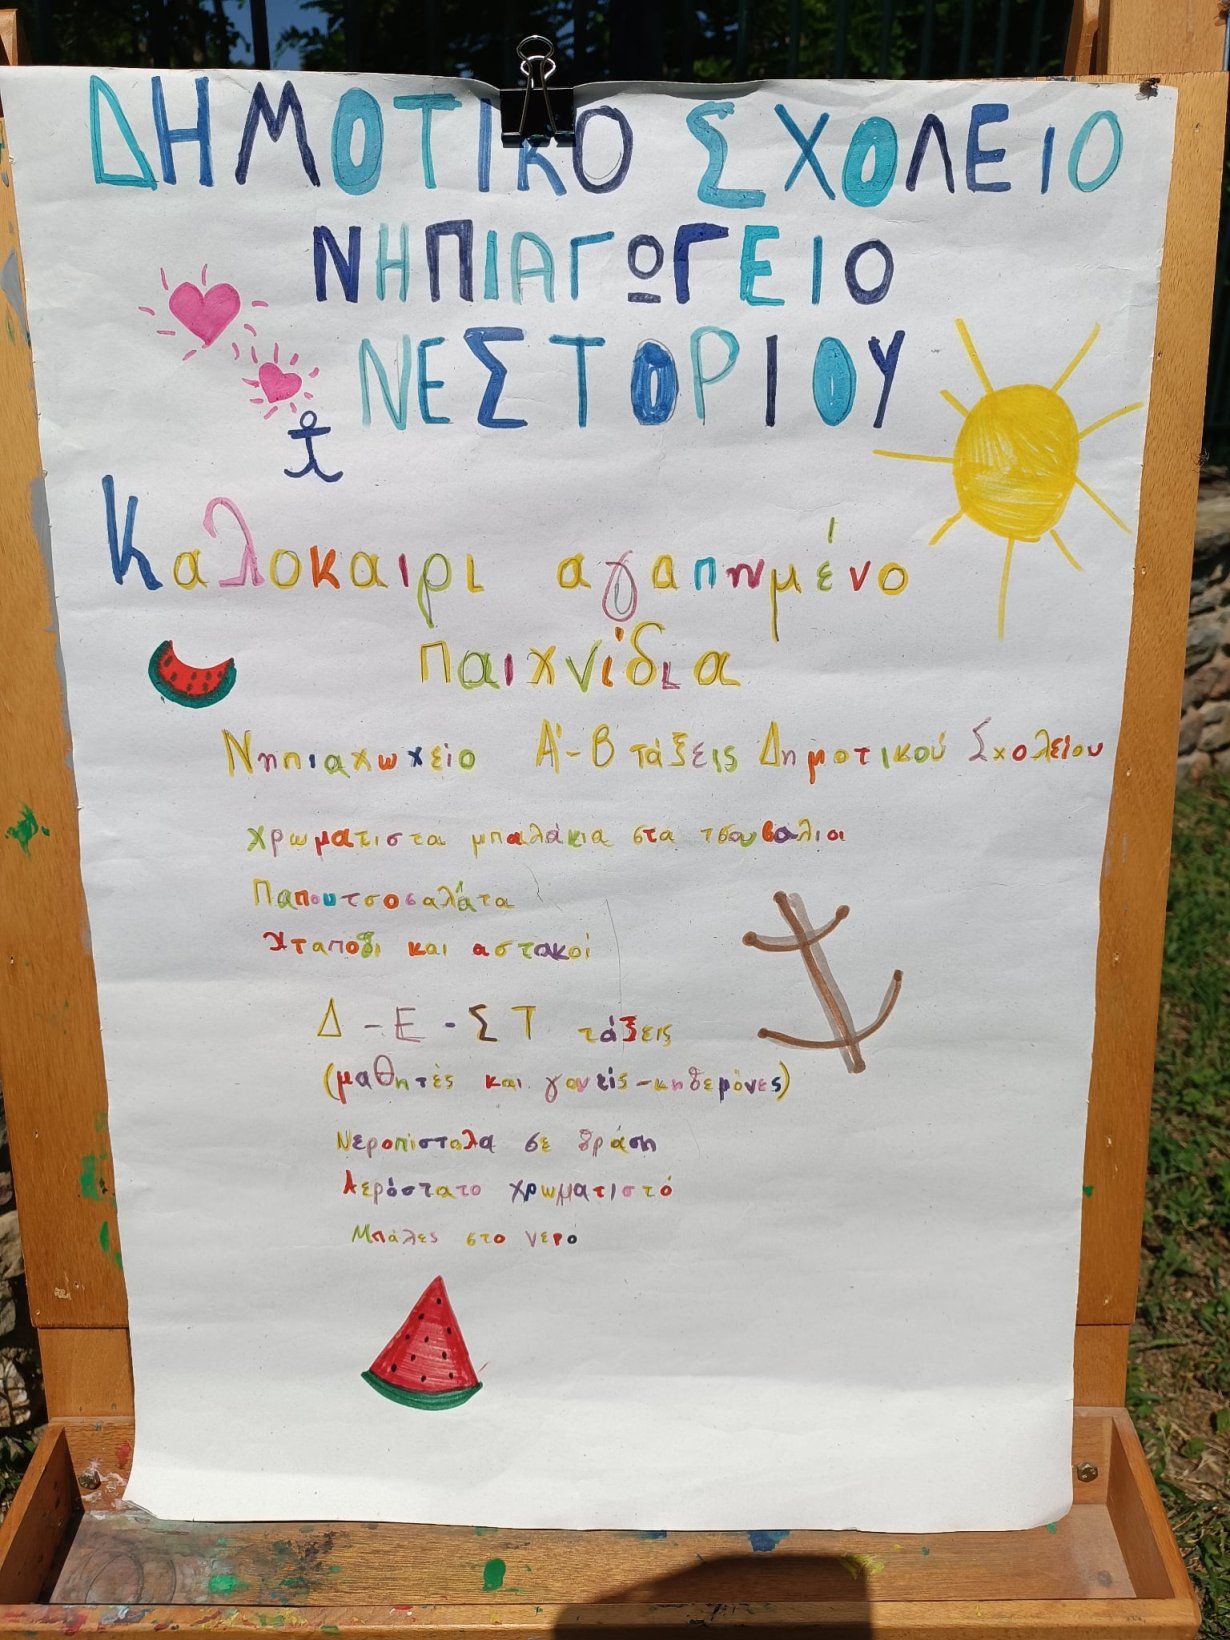 ΔΗΜΟΤΙΚΟ ΣΧΟΛΕΙΟ
ΝΗΠΙΑΓΩΓΕΙΟ
ΝΕΣΤΟΡΙΟΥ
Καλοκαιρι αγαπημένο
παιχνίδια
Νηπιαχωχείο Α'-Β τάξεις Δημοτικού Σχολείου
Χρωματιστα μπαλάκια στα τσουβαλια
Παπουτσοσαλάτα
Χταπόδι και αστακοί
Δ-Ε-ΣΤ τάξεις
(μαθητές και γονείς-κηδεμόνες)
Νεροπίστολα σε δράση
Αερόστατο χρωματιστό
Μπάλες στο νερο